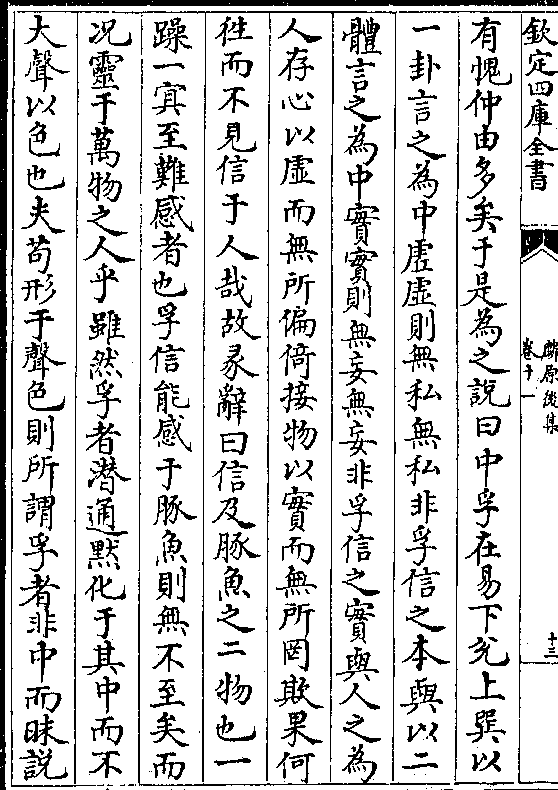 欽定四庫全書
麟原後集
卷十一
十三
有愧仲由多矣于是為之說曰中孚在易下兊上巽以
一卦言之為中虛虛則無私無私非孚信之本與以二
體言之為中實實則無妄無妄非孚信之實與人之為
人存心以虛而無所偏倚接物以實而無所罔欺果何
徃而不見信于人哉故彖辭曰信及豚魚之二物也一
躁一冥至難感者也孚信能感于豚魚則無不至矣而
况靈于萬物之人乎雖然孚者潜通黙化于其中而不
大聲以色也夫苟形于聲色則所謂孚者非中而昧說